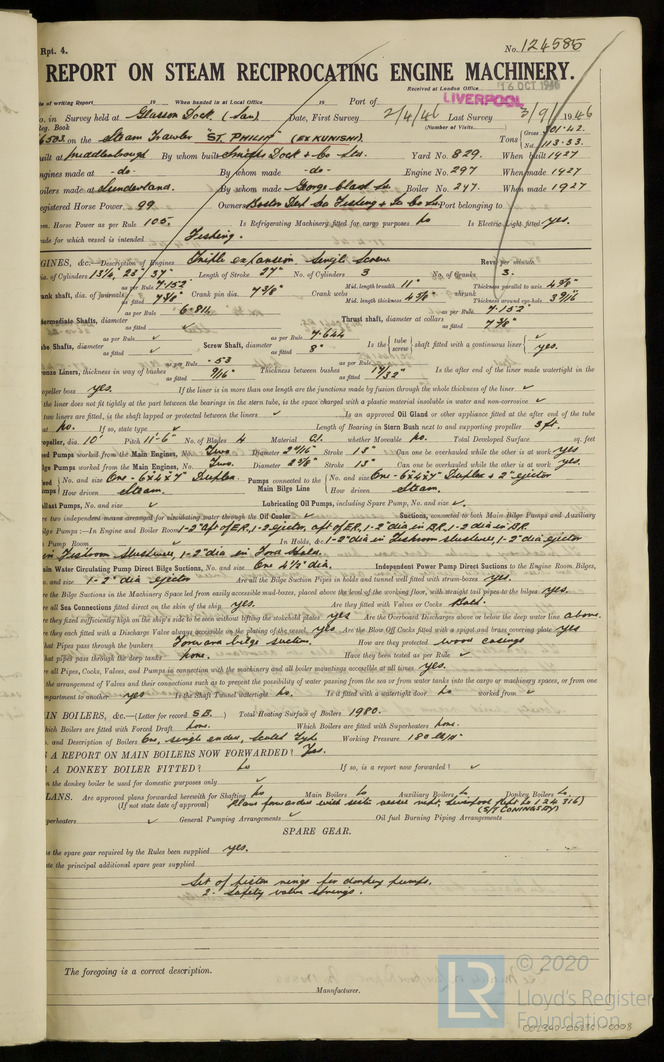 Rpt. 4.
No. 124585
REPORT ON STEAM RECIPROCATING ENGINE MACHINERY.
Received at London Office 16 OCT 1946
te of writing Report 19 When handed in at Local Office 19 Port of LIVERPOOL
o. in Survey held at Glasson Dock (Lan) Date, First Survey 2/4/46 Last Survey 3/9/1946
eg. Book (Number of Visits
6503 on the Steam Trawler "ST. PHILIP" (EX KUNISHI). Tons Gross 301.42. Net 113.33
uilt at Middlesbrough By whom built Smiths Dock & Co Ltd. Yard No. 829. When built 1927
ngines made at -do- By whom made -do- Engine No. 297 When made 1927
oilers made at Sunderland. By whom made George Clark Ltd. Boiler No. 247. When made 1927
egistered Horse Power 99. Owners Boston Deep Sea Fishing & Ice Co Ltd. Port belonging to
om. Horse Power as per Rule 105. Is Refrigerating Machinery fitted for cargo purposes No Is Electric Light fitted yes.
rade for which vessel is intended Fishing.
NGINES, &c.—Description of Engines Triple expansion Single Screw Revs. per minute
ia. of Cylinders 13 1/4, 23" 37" Length of Stroke 27" No. of Cylinders 3 No. of Cranks 3.
rank shaft, dia. of journals as per Rule 7.152 as fitted 7 3/8" Crank pin dia. 7 3/8" Crank webs Mid. length breadth 11" Mid. length thickness 4 5/8" shrunk Thickness parallel to axis 4 5/8" Thickness around eye-hole 3 9/16
termediate Shafts, diameter as per Rule 6.814 as fitted ✓ Thrust shaft, diameter at collars as per Rule 7.152 as fitted 7 3/8"
ube Shafts, diameter as per Rule as fitted ✓ Screw Shaft, diameter as per Rule 7.644 as fitted 8" Is the tube screw shaft fitted with a continuous liner ✓ yes.
onze Liners, thickness in way of bushes as per Rule .53 as fitted 9/16" Thickness between bushes as per Rule as fitted 17/32" Is the after end of the liner made watertight in the
opeller boss yes. If the liner is in more than one length are the junctions made by fusion through the whole thickness of the liner ✓
the liner does not fit tightly at the part between the bearings in the stern tube, is the space charged with a plastic material insoluble in water and non-corrosive ✓
two liners are fitted, is the shaft lapped or protected between the liners ✓ Is an approved Oil Gland or other appliance fitted at the after end of the tube
at No. If so, state type ✓ Length of Bearing in Stern Bush next to and supporting propeller 3 ft.
opeller, dia. 10' Pitch 11'-6" No. of Blades 4 Material C.I. whether Moveable No. Total Developed Surface sq. feet
eed Pumps worked from the Main Engines, No. Two. Diameter 2 11/16" Stroke 13" Can one be overhauled while the other is at work yes
lge Pumps worked from the Main Engines, No. Two. Diameter 2 3/4" Stroke 13" Can one be overhauled while the other is at work yes.
eed mps No. and size One - 6"x4"x7" Duplex. How driven Steam. Pumps connected to the Main Bilge Line No. and size One - 6"x4"x7" Duplex & 2" ejector How driven Steam.
llast Pumps, No. and size ✓ Lubricating Oil Pumps, including Spare Pump, No. and size ✓
re two independent means arranged for circulating water through the Oil Cooler ✓ Suctions, connected to both Main Bilge Pumps and Auxiliary
lge Pumps:—In Engine and Boiler Room 1-2" aft of E.R., 1-2 ejector, aft of E.R., 1-2" dia in B.R., 1-2 dia in B.R.
Pump Room ✓ In Holds, &c. 1-2" dia in Fishroom slushwell, 1-2" dia ejector
in Fishroom slushwell, 1-2" dia in Ford Hold.
ain Water Circulating Pump Direct Bilge Suctions, No. and size One 4 1/2" dia. Independent Power Pump Direct Suctions to the Engine Room Bilges,
o. and size 1-2" dia ejector Are all the Bilge Suction Pipes in holds and tunnel well fitted with strum-boxes yes.
re the Bilge Suctions in the Machinery Space led from easily accessible mud-boxes, placed above the level of the working floor, with straight tail pipes to the bilges yes.
re all Sea Connections fitted direct on the skin of the ship yes. Are they fitted with Valves or Cocks Both.
re they fixed sufficiently high on the ship's side to be seen without lifting the stokehold plates yes Are the Overboard Discharges above or below the deep water line above.
re they each fitted with a Discharge Valve always accessible on the plating of the vessel yes Are the Blow Off Cocks fitted with a spigot and brass covering plate yes
hat Pipes pass through the bunkers Forward bilge suction. How are they protected wood casings
hat pipes pass through the deep tanks None. Have they been tested as per Rule ✓
re all Pipes, Cocks, Valves, and Pumps in connection with the machinery and all boiler mountings accessible at all times yes.
the arrangement of Valves and their connections such as to prevent the possibility of water passing from the sea or from water tanks into the cargo or machinery spaces, or from one
mpartment to another yes Is the Shaft Tunnel watertight No. Is it fitted with a watertight door No worked from ✓
IN BOILERS, &c.—(Letter for record S.B.) Total Heating Surface of Boilers 1980.
hich Boilers are fitted with Forced Draft None. Which Boilers are fitted with Superheaters None.
o. and Description of Boilers One, single ended, Working Pressure 180 lb/in²
S A REPORT ON MAIN BOILERS NOW FORWARDED? Yes.
S A DONKEY BOILER FITTED? No If so, is a report now forwarded? ✓
n the donkey boiler be used for domestic purposes only ✓
LANS. Are approved plans forwarded herewith for Shafting No Main Boilers No Auxiliary Boilers No Donkey Boilers No.
(If not state date of approval) Plans forwarded with sister vessel rept. Liverpool Rept No 124316)
(S/T CONINGSBY)
uperheaters ✓ General Pumping Arrangements ✓ Oil fuel Burning Piping Arrangements
SPARE GEAR.
s the spare gear required by the Rules been supplied yes.
ate the principal additional spare gear supplied
Set of piston rings for donkey pumps.
2. safety valve springs.
The foregoing is a correct description.
Manufacturer.
LR © 2020
Lloyd's Register
Foundation
002390-002301-0008